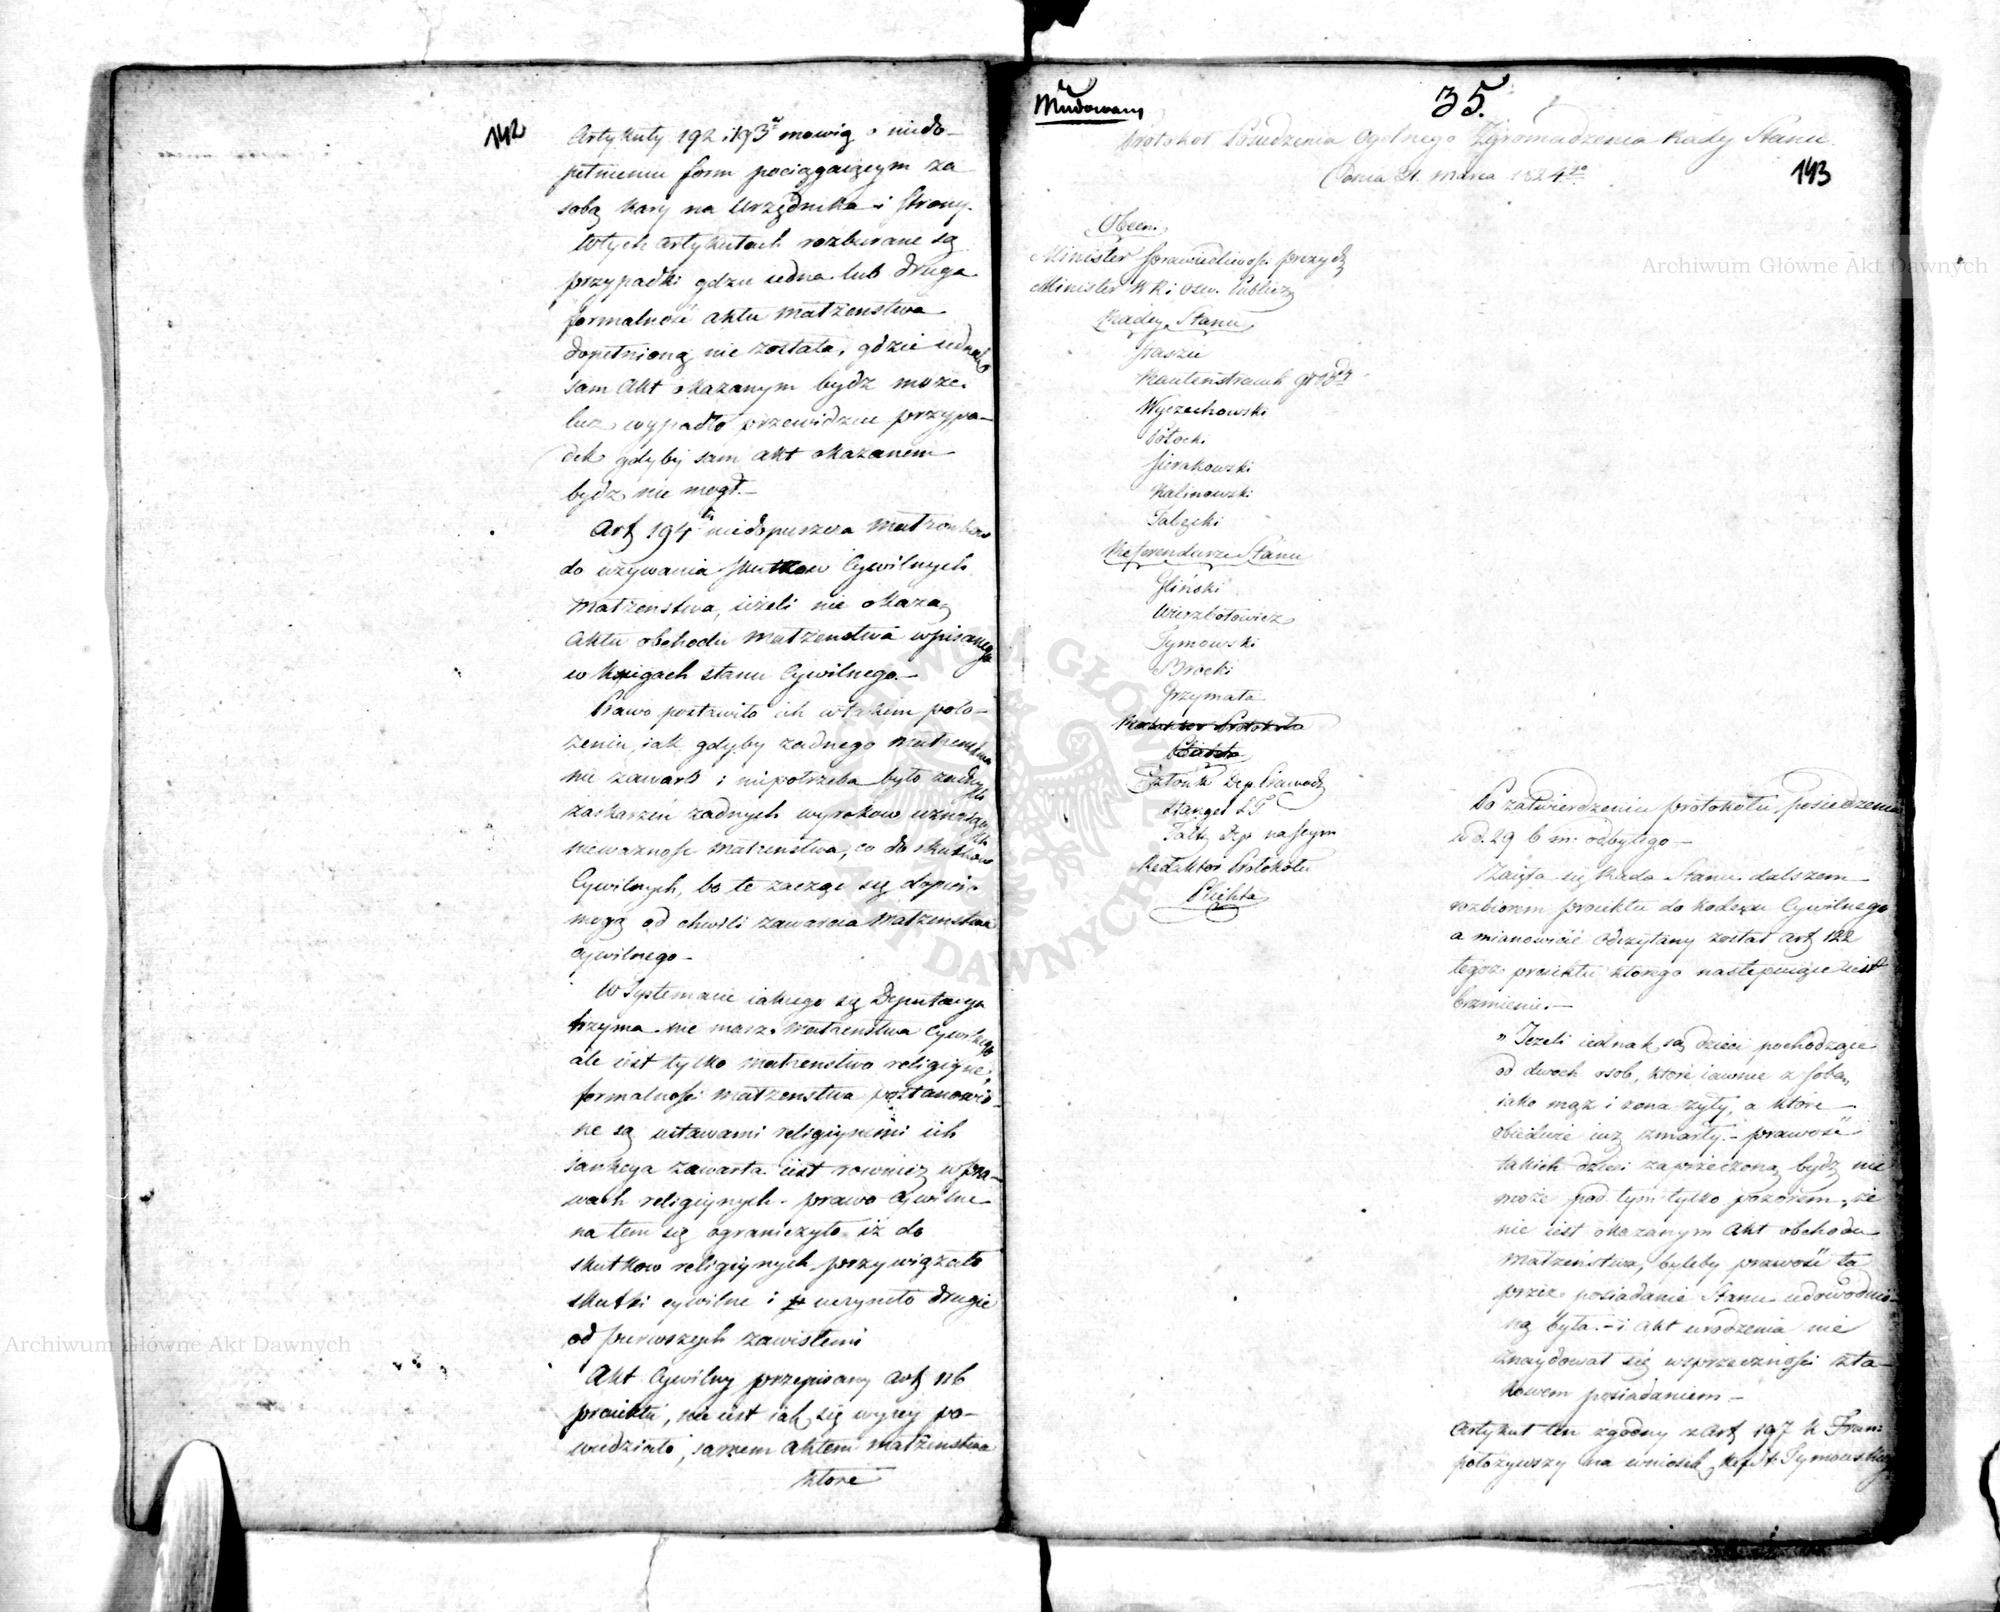 142
Artykuły 192 i 193 mowią o niedo-
pełnieniu form pociągaiącym za
sobą kary na Urzędnika i strony.
W tych artykułach rozbierane są
przypadki gdzie iedna lub druga
formalność aktu małżeństwa
dopełnioną nie została, gdzie iednak
sam Akt okazanym bydź może.
lecz wypadło przewidzieć przypa-
dek gdyby sam akt okazanem
bydź nie mogł.-
Art 194ty niedopuszcza Małżonkow
do używania skutkow Cywilnych
Małżenstwa, ieżeli nie okażą
Aktu obchodu Małżenstwa wpisanego
w księgach stanu Cywilnego.-
Prawo postawiło ich w takim poło-
żeniu, iak gdyby żadnego Małżeństwa
nie zawarli; niepotrzeba było żadnych
zaskarżeń żadnych wyrokow uznaiących
nieważność Małżenstwa, co do skutkow
Cywilnych, bo te zacząć się dopiero
mogą od chwili zawarcia Małżenstwa
cywilnego-
W Systemacie iakiego się Deputacya
trzyma nie masz Małżenstwa Cywilnego
ale iest tylko małżenstwo religiyne,
formalności Małżenstwa postanowio-
ne są ustawami religiynemi ich
sankcya zawarta iest rownież w pra-
wach religiynych. prawo cywilne
na tem się ograniczyło iż do
skutkow religiynych przywiązało
skutki cywilne i uczyniło drugie
od pierwszych zawisłemi
Akt Cywilny przepisany art 116
proiektu, nie iest iak się wyżey po-
wiedziało, samem aktem Małżenstwa
które
35.
Protokoł Posiedzenia Ogolnego Zgromadzenia Rady Stanu.
Dnia 31. Marca 1824go
143
Obecni
Minister Sprawiedliwości prezyd
Minister WR i Ośw. Publicz
Radcy Stanu
Staszic
Kautenstrauch
Wyczechowski
Potocki
Sierakowski
Kalinowski
Referendarze Stanu
Gliński
Wierzbołowicz
Tymowski
Brocki
Grzymała
Redaktor Protokołu
Plichta
Członk Dep. Prawod
Stanger
na Seym
Redaktor Protokołu
Plichta
Po zatwierdzeniu protokołu, posiedzenia
w d. 29 b m: odbytego-
Zaięła się Rada Stanu dalszem
rozbiorem proiektu do Kodexu Cywilnego
a mianowicie odczytany został art 122
tegoż proiektu którego następuiące iest
brzmienie.-
„Jeżeli iednak są dzieci pochodzące
od dwoch osob, które iawnie z sobą
iako mąż i żona żyły, a które
obiedwie iuż zmarły.- prawość
takich dzieci zaprzeczoną bydź nie
może pod tym tylko pozorem, że
nie iest okazanym Akt obchodu
Małżeństwa, byleby prawość ta
przez posiadanie Stanu udowodnio-
ną była.- i Akt urodzenia nie
znaydował się w sprzeczności z ta-
kowem posiadaniem-
Artykuł ten zgodny z Art 197 K Fran:
położywszy na wniosek Ref St. Tymowskiego
Archiwum Główne Akt Dawnych
Archiwum Główne Akt Dawnych
ARCHIWUM GŁÓWNE AKT DAWNYCH